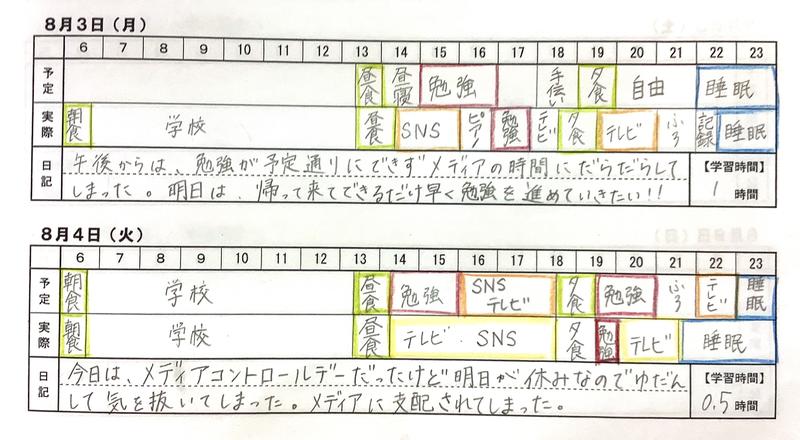 8月3日（月）
6 7 8 9 10 11 12 13 14 15 16 17 18 19 20 21 22 23
予定 昼食 昼寝 勉強 手伝い 夕食 自由 睡眠
実際 朝食 学校 昼食 SNS ピアノ 勉強 テレビ 夕食 テレビ ふろ 記録 睡眠
日記 午後からは、勉強が予定通りにできずメディアの時間にだらだらして
しまった。明日は、帰って来てできるだけ早く勉強を進めていきたい!!
【学習時間】
1 時間
8月4日（火）
6 7 8 9 10 11 12 13 14 15 16 17 18 19 20 21 22 23
予定 朝食 学校 昼食 勉強 SNS テレビ 夕食 勉強 ふろ テレビ 睡眠
実際 朝食 学校 昼食 テレビ・SNS 夕食 勉強 テレビ 睡眠
日記 今日は、メディアコントロールデーだったけど明日が休みなのでゆだん
して気を抜いてしまった。メディアに支配されてしまった。
【学習時間】
0.5 時間